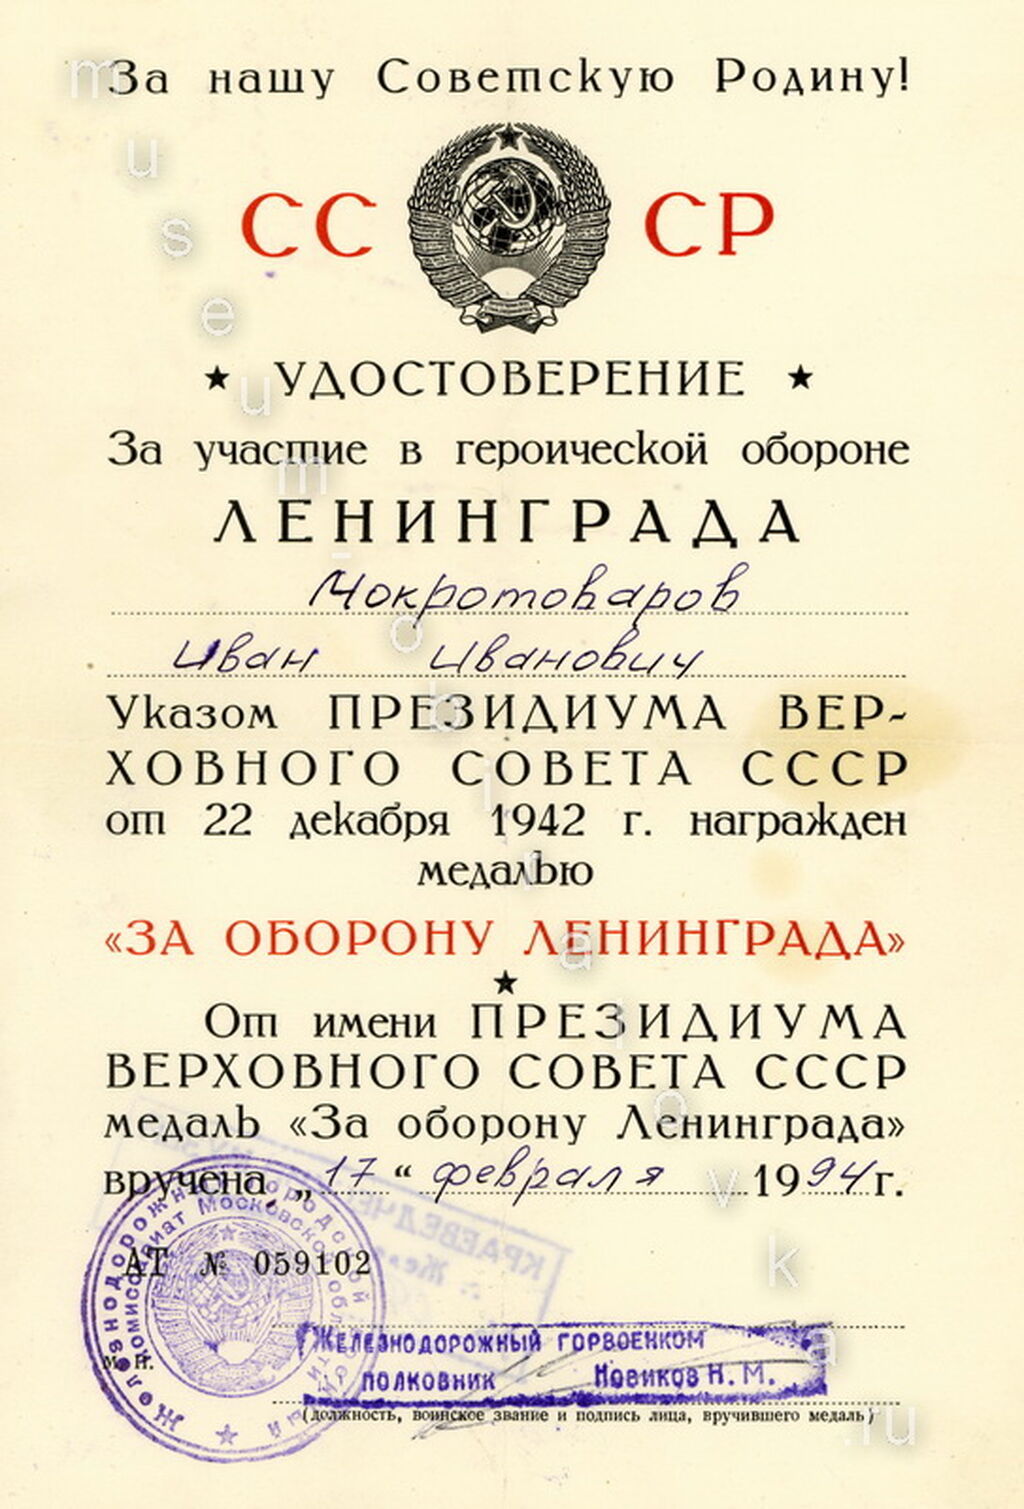 За нашу Советскую Родину!
СС СР
★ УДОСТОВЕРЕНИЕ ★
За участие в героической обороне
ЛЕНИНГРАДА
Мокротоваров
Иван Иванович
Указом ПРЕЗИДИУМА ВЕР-
ХОВНОГО СОВЕТА СССР
от 22 декабря 1942 г. награжден
медалью
«ЗА ОБОРОНУ ЛЕНИНГРАДА»
★
От имени ПРЕЗИДИУМА
ВЕРХОВНОГО СОВЕТА СССР
медаль «За оборону Ленинграда»
вручена „17“ февраля 1994 г.
АТ № 059102
Железнодорожный городской
комиссариат Московской области
ЖЕЛЕЗНОДОРОЖНЫЙ ГОРВОЕНКОМ
М. П.
ПОЛКОВНИК НОВИКОВ Н. М.
(должность, воинское звание и подпись лица, вручившего медаль)
museum-obiralovka.ru